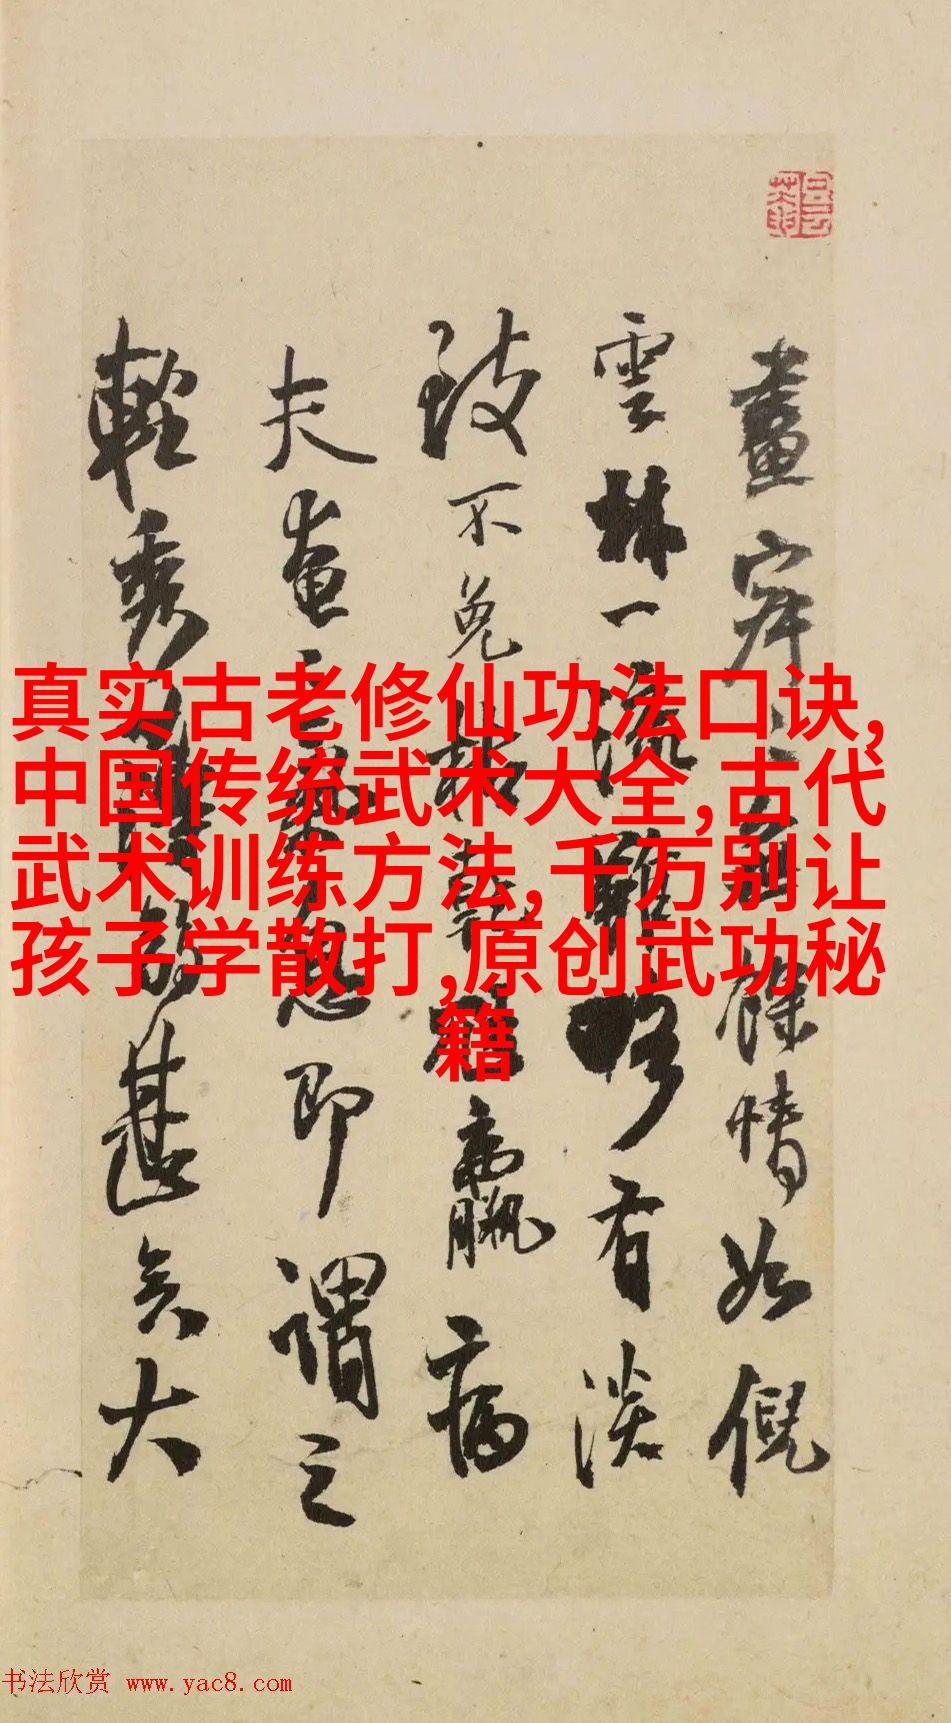 真实古老修仙功法口诀,
中国传统武术大全,古代
武术训练方法,千万别让
孩子学散打,原创武功秘
籍
畫 餘情如倪
雲林一流雖 有淡
致不免枯乾 羸病
夫 即謂之
輕秀 甚矣大
书法欣赏 www.yac8.com